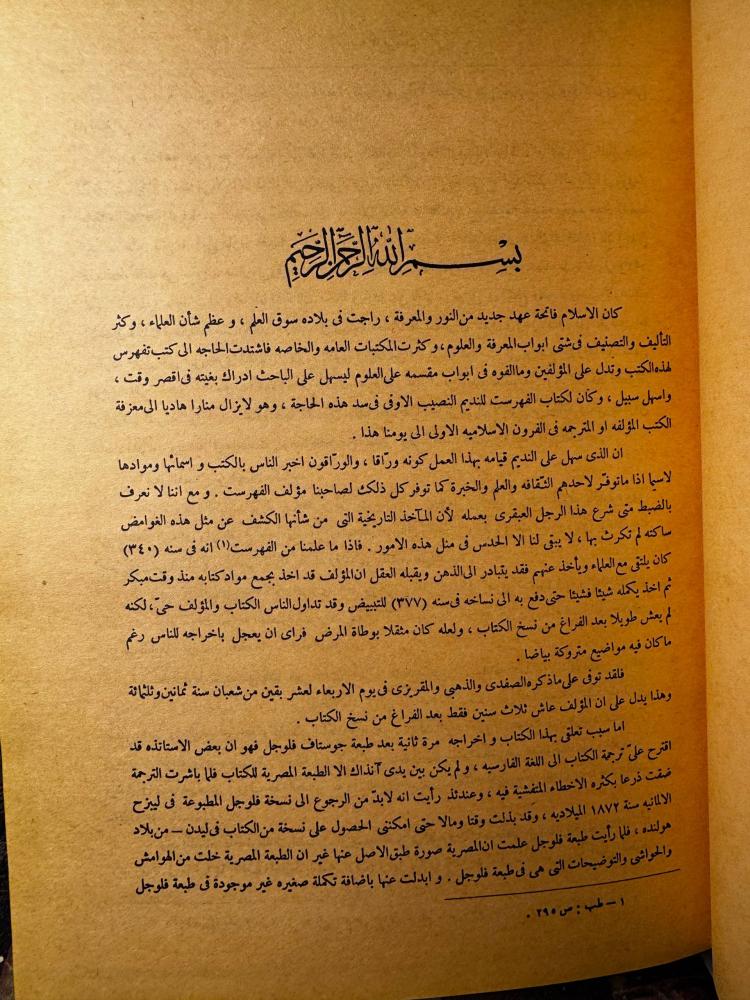 بسم الله الرحمن الرحيم
كان الاسلام فاتحة عهد جديد من النور والمعرفة ، راجت فى بلاده سوق العلم ، و عظم شأن العلماء ، وكثر
التأليف والتصنيف فى شتى ابواب المعرفة والعلوم ، وكثرت المكتبات العامه والخاصه فاشتدت الحاجه الى كتب تفهرس
لهذه الكتب وتدل على المؤلفين وما القوه فى ابواب مقسمه على العلوم ليسهل على الباحث ادراك بغيته فى اقصر وقت ،
واسهل سبيل ، وكان لكتاب الفهرست للنديم النصيب الاوفى فى سد هذه الحاجة ، وهو لايزال منارا هاديا الى معرفة
الكتب المؤلفه او المترجمه فى القرون الاسلاميه الاولى الى يومنا هذا .
ان الذى سهل على النديم قيامه بهذا العمل كونه ورّاقا ، والورّاقون اخبر الناس بالكتب و اسمائها وموادها
لاسيما اذا ماتوفّر لاحدهم الثّقافه والعلم والخبرة كما توفر كل ذلك لصاحبنا مؤلف الفهرست . و مع اننا لا نعرف
بالضبط متى شرع هذا الرجل العبقرى بعمله لأن المآخذ التاريخية التى من شأنها الكشف عن مثل هذه الغوامض
ساكته لم تكرث بها ، لا يبقى لنا الا الحدس فى مثل هذه الامور . فاذا ما علمنا من الفهرست(۱) انه فى سنه (۳٤۰)
كان يلتقى مع العلماء ويأخذ عنهم فقد يتبادر الى الذهن ويقبله العقل ان المؤلف قد اخذ بجمع مواد كتابه منذ وقت مبكر
ثم اخذ يكمله شيئا فشيئا حتى دفع به الى نساخه فى سنه (۳۷۷) للتبييض وقد تداول الناس الكتاب والمؤلف حىّ ، لكنه
لم يعش طويلا بعد الفراغ من نسخ الكتاب ، ولعله كان مثقلا بوطاة المرض فراى ان يعجل باخراجه للناس رغم
ماكان فيه مواضيع متروكة بياضا .
فلقد توفى على ماذكره الصفدى والذهبى والمقريزى فى يوم الاربعاء لعشر بقين من شعبان سنة ثمانين وثلثمائة
وهذا يدل على ان المؤلف عاش ثلاث سنين فقط بعد الفراغ من نسخ الكتاب .
اما سبب تعلقى بهذا الكتاب و اخراجه مرة ثانية بعد طبعة جوستاف فلوجل فهو ان بعض الاستاتذه قد
اقترح علىّ ترجمة الكتاب الى اللغة الفارسيه ، ولم يكن بين يدى آنذاك الا الطبعة المصرية للكتاب فلما باشرت الترجمة
ضقت ذرعا بكثره الاخطاء المتفشية فيه ، وعندئذ رأيت انه لابدّ من الرجوع الى نسخة فلوجل المطبوعة فى ليبزج
الالمانيه سنة ۱۸۷۲ الميلاديه ، وقد بذلت وقتا ومالا حتى امكننى الحصول على نسخة من الكتاب فى ليدن – من بلاد
هولنده ، فلما رأيت طبعة فلوجل علمت ان المصرية صورة طبق الاصل عنها غير ان الطبعة المصرية خلت من الهوامش
والحواشى والتوضيحات التى هى فى طبعة فلوجل . و ابدلت عنها باضافة تكملة صغيره غير موجودة فى طبعة فلوجل
۱ – طب : ص ۲۹٥ .